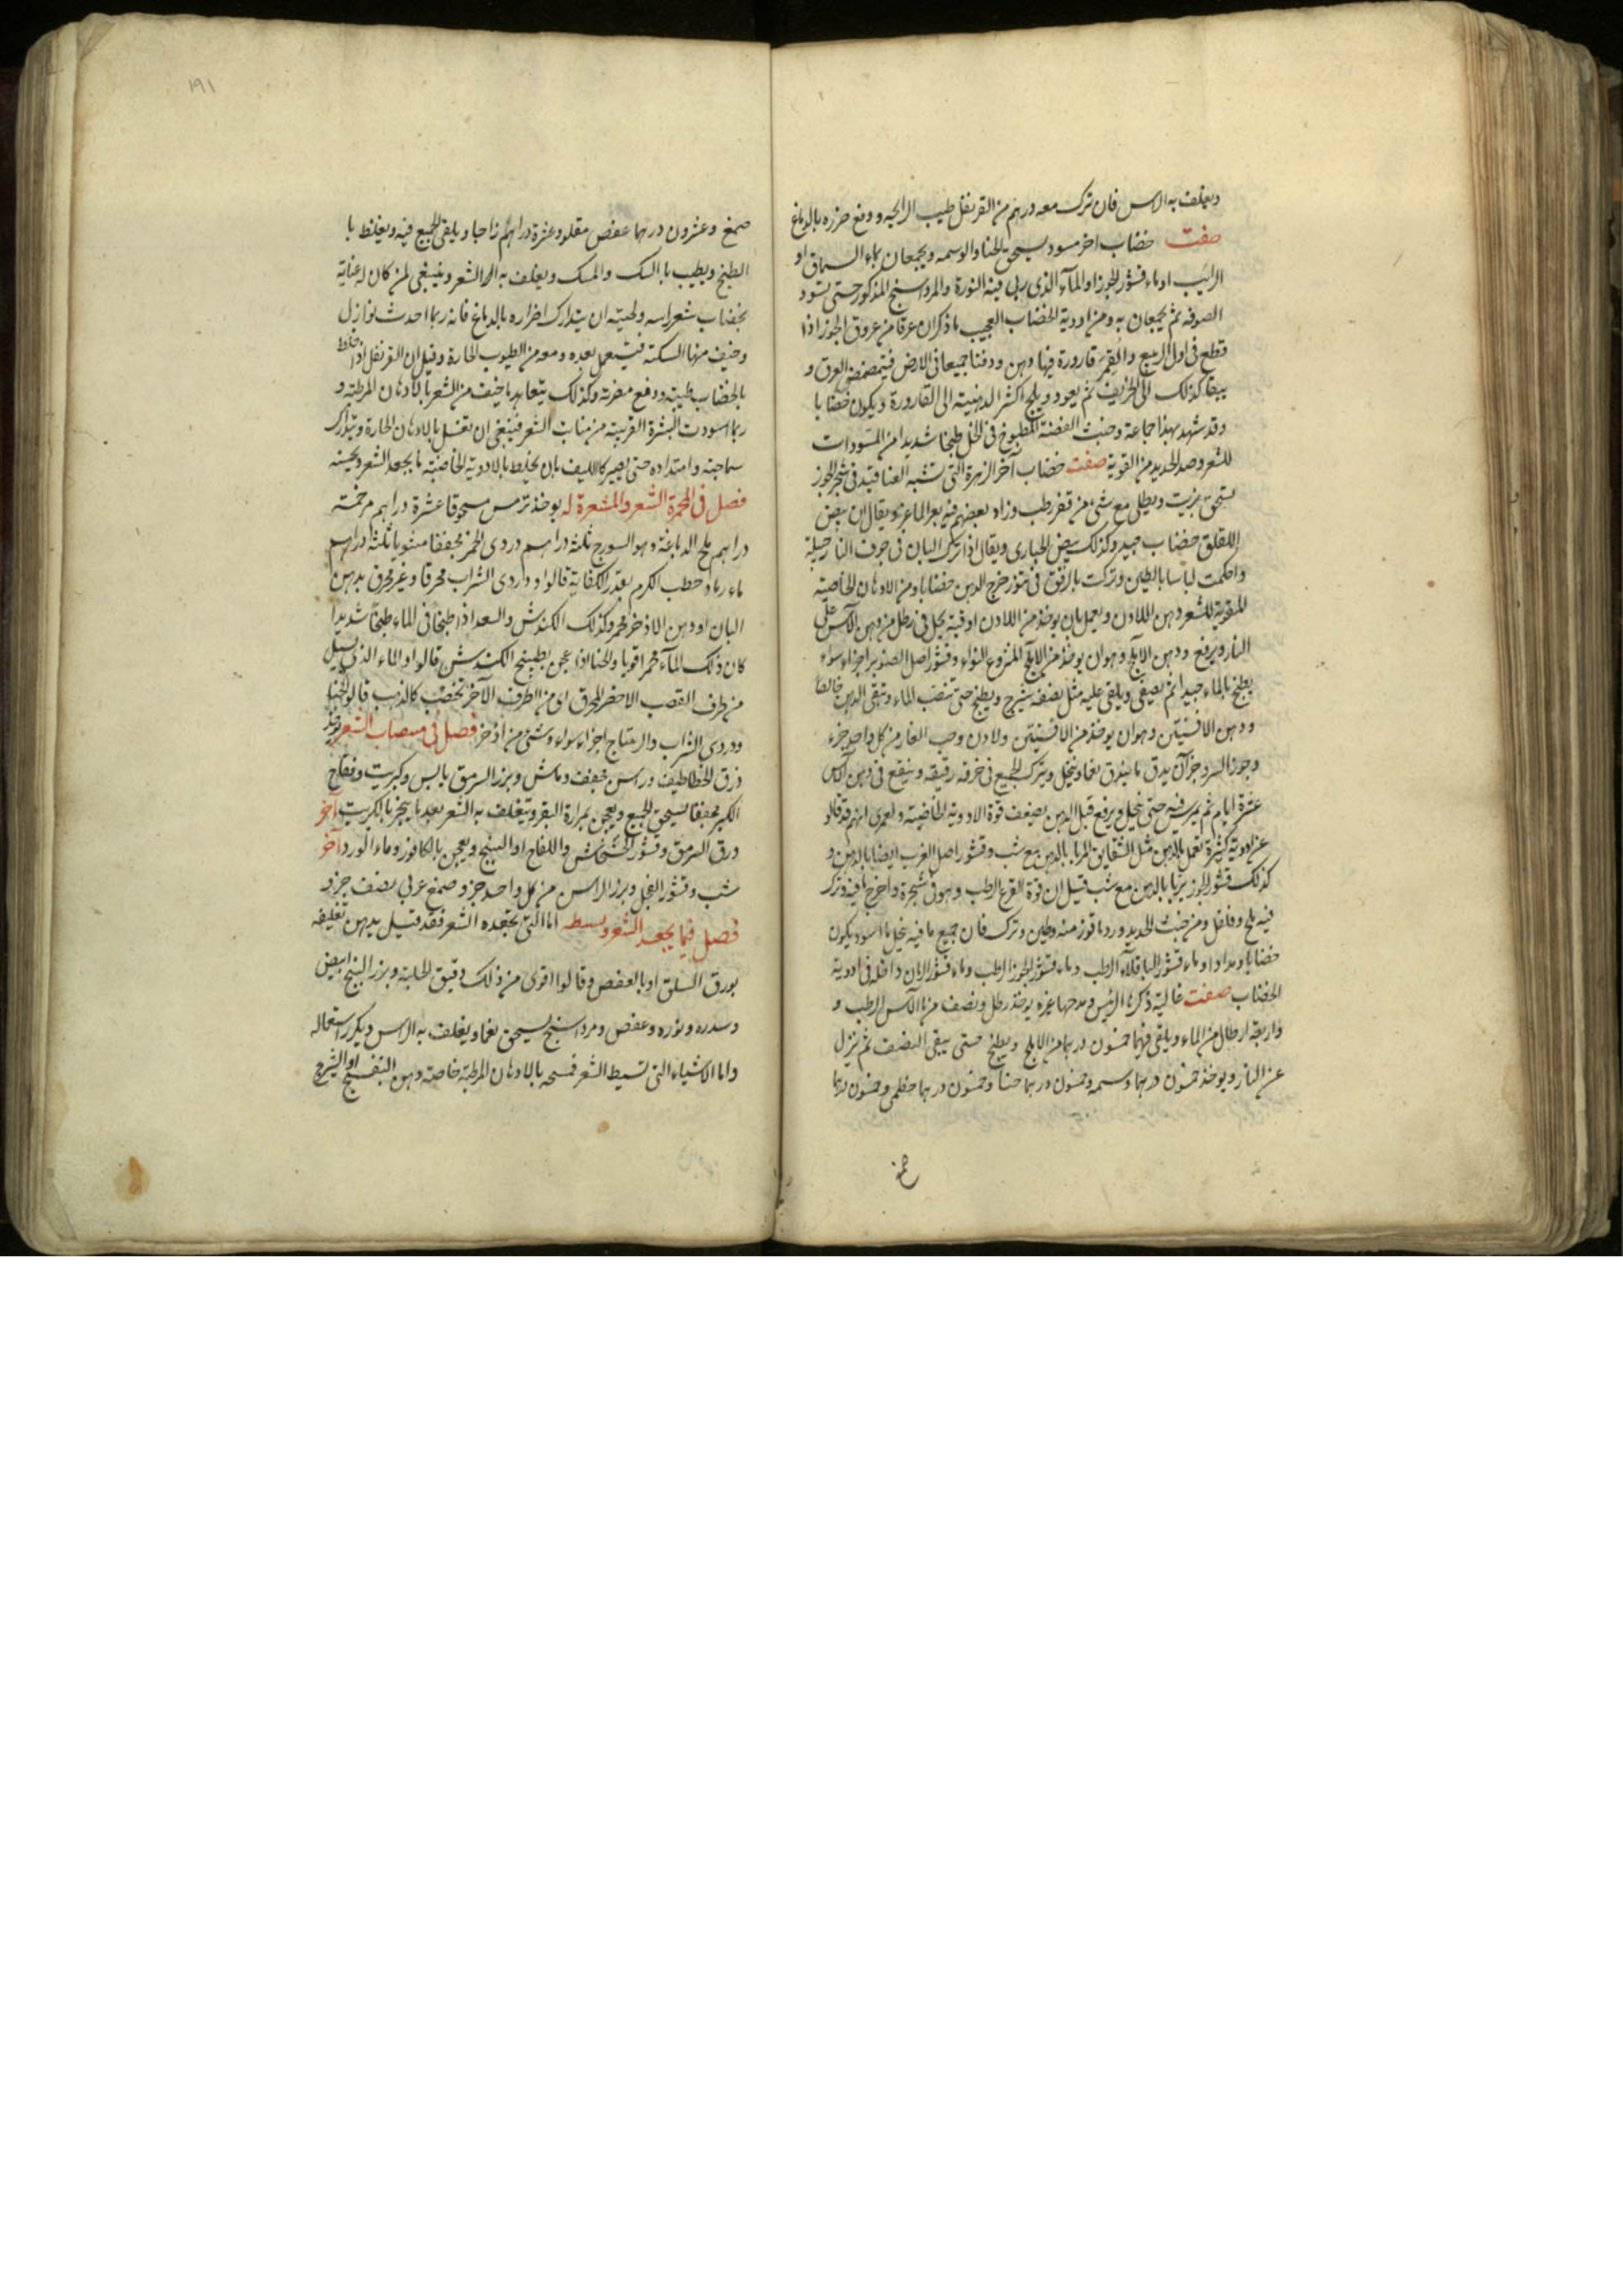 ويغلف به الراس فان ترك معه درهم من القرنفل طيب الرايحه ودفع ضرره بالدماغ
صفت خضاب اخر مسود يسحق الحنا والوسمه ويجمعان بماء السماق او
الرايب او ماء قشور الجوز او المآء الذى ربى فيه النورة والمرداسنج المذكور حتى تسود
الصوفه ثم يجمعان به ومن ادوية الخضاب العجيب ما ذكر ان عرقا من عروق الجوز اذا
قطع فى اول الربيع والقم قارورة فيها دهن ودفنا جميعا فى الارض فيتمصمص العرق و
يبقا كذلك الى الخريف ثم يعود ويلج اكثر الدهنية الى القارورة ويكون خضابا
وقد شهد بهذا جماعة وخبث الفضة المطبوخ فى الخل طبخا شديدا من المسودات
للشعر وصد الحديد من القوية صفت خضاب آخر الزهرة التى تشبه العناقيد فى شجر الجوز
تسحق بزيت ويطلى مع شئ من قفر رطب وزاد بعضهم فيه بعر الماعز ويقال ان بيض
اللقلق خضاب جيد وكذلك بيض الحبارى ويقال اذا ترك البان فى جوف النارجيلة
واحكمت لباسا بالطين وتركت بالرفق فى تنور خرج الدهن خضابا ومن الادهان الخاصية
المقوية للشعر دهن اللادن ويعمل بان يوخذ من اللادن اوقية يحل فى رطل من دهن الآس على
النار ويرفع ودهن الاملج وهو ان يوخذ من الاملج المنزوع النواء وقشور اصل الصنوبر اجزاء سواء
يطبخ بالماء جيدا ثم يصفى ويلقى عليه مثل نصفه شيرج ويطبخ حتى تنضب الماء وتبقى الدهن خالصا
ودهن الافسنيتن وهو ان يوخذ من الافسنيتن ولادن وحب الغار من كل واحد جزء
وجوز السرو جزآن يدق ما يندق نعما وينخل ويترك الجميع فى خرقه رقيقه وينقع فى دهن الآس
عشرة ايام ثم يمرس فيه حتى ينحل ويرفع قيل الدهن يضعف قوة الادوية الخاضبة ولعمرى انهم قد قالو
عن ادوية كثيرة تعمل بالدهن مثل الشقايق المرابا بالدهن مع شب وقشور اصل الغرب ايضا بالدهن و
كذلك قشور الجوز يربا بالدهن مع شب قيل ان قوة القرع الرطب وهو فى شجرة واخرج ما فيه وترك
فيه ملح وفلفل ومن خبث الحديد ورد ما قور منه وطين وترك فان جميع ما فيه ينحل ماء اسود يكون
خضابا ومدادا وماء قشور الباقلاء الرطب وماء قشور الجوز الرطب وماء قشور الرمان داخلة فى ادوية
الخضاب صفت غالية ذكرها الرئيس ومدحها غيره يوخذ رطل ونصف من ماء الآس الرطب و
واربعة ارطال من الماء ويلقى فيهما خمسون درهما من الاملج ويطبخ حتى يبقى النصف ثم ينزل
عن النار ويوخذ خمسون درهما وسمه وخمسون درهما حنا وخمسون درهما خطمى وخمسون درهما
صمغ
١٩١
صمغ وعشرون درهما عفص مقلو وعشرة دراهم زاجا ويلقى الجميع فيه ويغلظ با
الطبخ ويطيب با السك والمسك ويغلف به الراس الشعر وينبغى لمن كان له عناية
بخضاب شعر راسه ولحيته ان يتدارك اضراره بالدماغ فانه ربما احدث نوازل
وخيف منها السكته فيستعمل بعده ومعه من الطيوب الحارة وقيل ان القرنفل اذا خلط
بالخضاب طيبته ودفع مضرته وكذلك يتعاهد ما خيف من الشعر بالادهان المرطبه و
ربما اسودت البشرة القريبة من منابت الشعر فينبغى ان تغسل بالادهان الحارة ويتدارك
سماجته وامتداده حتى يصير كالليف بان يخلط بالادوية الخاضبة ما يجعد الشعر ويحسنه
فصل فى المحمرة الشعر والمشعرة له يوخذ ترمس مسحوقا عشرة دراهم مر خمسة
دراهم ملح الدباغة وهو السورج ثلثة دراهم دردى الخمر مجففا مشويا ثلثة دراهم
ماء رماد حطب الكرم بقدر الكفاية قالوا ودردى الشراب محرقا وغير محرق بدهن
البان او دهن الاذخر محمر وكذلك الكندش والسعد اذا طبخا فى الماء طبخا شديدا
كان ذلك المآء محمرا قويا والحنا اذا عجن بطبيخ الكندش قالوا والماء الذى يسيل
من طرف القصب الاخضر المحرق اى من الطرف الآخر تخضب كالذهب قالو الحنا
ودردى الشراب والريتاج اجزاء سواء وشئ من اذخر فصل فى مبيضات الشعر يوخذ
ذرق الخطاطيف وراسن مجفف وماش وبزر السرمق يابس وكبريت وفقاح
الكبر مجففا يسحق الجميع ويعجن بمرارة البقر وتغلف به الشعر بعد ما يبخر بالكبريت آخر
ورق السرمق وقشور الخشخاش واللفاح او البنج ويعجن بالكافور وماء الورد آخر
شب وقشور الفجل وبزر الراسن من كل واحد جزو صمغ عربى نصف جزو
فصل فيما يجعد الشعر وبسطه اما التى تجعده الشعر فقد قيل يدهن تغليفه
بورق السلق او بالعفص وقالوا اقوى من ذلك دقيق الحلبة وبزر البنج ابيض
وسدره ونوره وعفص ومرداسنج يسحق نعما ويغلف به الراس ويكرر استعماله
واما الاشياء التى تسيط الشعر فمسحه بالادهان المرطبة خاصة دهن البنفسج او الشيرج